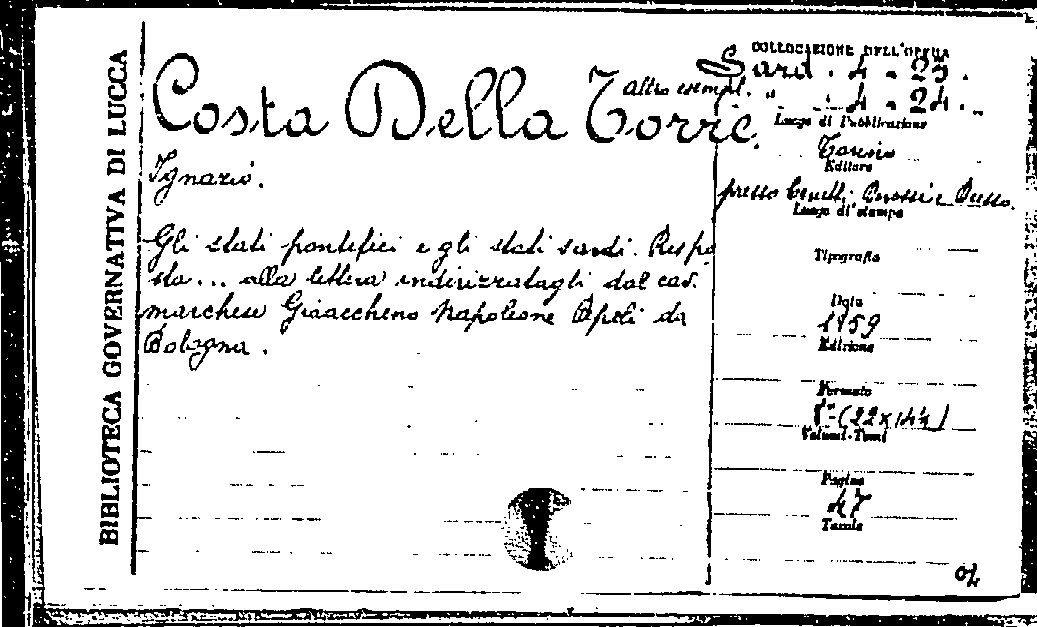 BIBLIOTECA GOVERNATIVA DI LUCCA
Costa Della Torre
Ignazio.
Gli stati pontifici e gli stati sardi. Rispo
sta... alla lettera indirizzatagli dal cav.
marchese Gioacchino Napoleone Pepoli da
Bologna.
COLLOCAZIONE DELL'OPERA
Sard. 4 - 23.
altro esempl. " 4 - 24.
Luogo di Pubblicazione
Torino
Editore
presso
Luogo di stampa
Tipografia
Data
1859
Edizione
Formato
8º (22x14½)
Volumi-Tomi
Pagine
47
Tavole